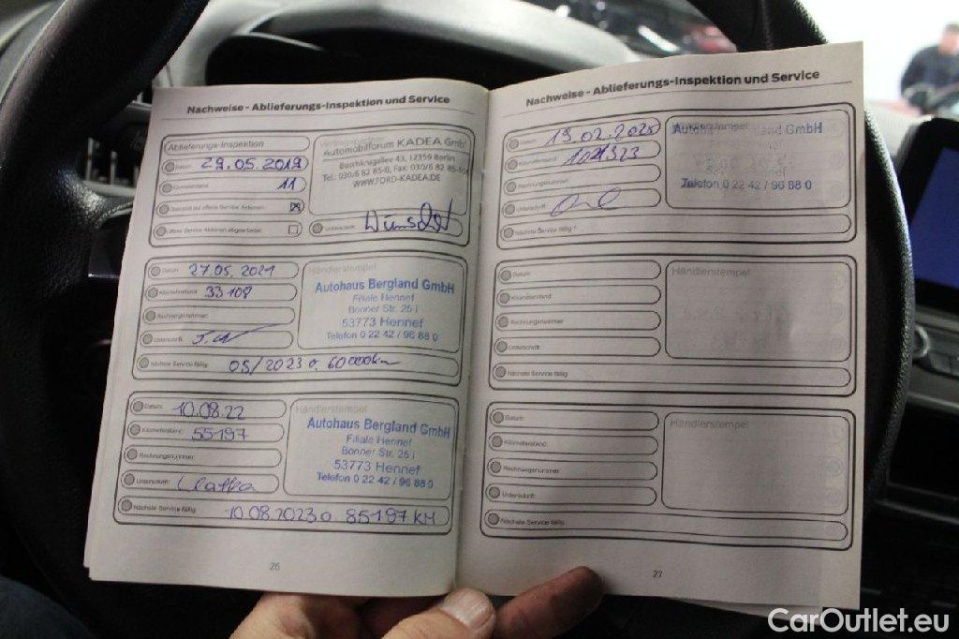 Nachweise - Ablieferungs-Inspektion und Service
Ablieferungs-Inspektion
Datum 29.05.2019
Kilometerstand 11
Händlerstempel
Automobilforum KADEA GmbH
Buschkrugallee 43, 12359 Berlin
Tel.: 030/6 82 85-0, Fax: 030/6 82 85-104
WWW.FORD-KADEA.DE
Unterschrift
Datum 27.05.2021
Kilometerstand 33108
Rechnungsnummer
Unterschrift
Nächste Service fällig 05/2023 o. 60000km
Händlerstempel
Autohaus Bergland GmbH
Filiale Hennef
Bonner Str. 25 i
53773 Hennef
Telefon 0 22 42 / 96 88 0
Datum 10.08.22
Kilometerstand 55197
Rechnungsnummer
Unterschrift
Nächste Service fällig 10.08.2023 o 85197 KM
Händlerstempel
Autohaus Bergland GmbH
Filiale Hennef
Bonner Str. 25 i
53773 Hennef
Telefon 0 22 42 / 96 88 0
26
Nachweise - Ablieferungs-Inspektion und Service
Datum
Kilometerstand
Rechnungsnummer
Unterschrift
Nächste Service fällig
Bergland GmbH
Telefon 0 22 42 / 96 88 0
Datum
Kilometerstand
Rechnungsnummer
Unterschrift
Nächste Service fällig
Händlerstempel
Datum
Kilometerstand
Rechnungsnummer
Unterschrift
Nächste Service fällig
Händlerstempel
27
CarOutlet.eu